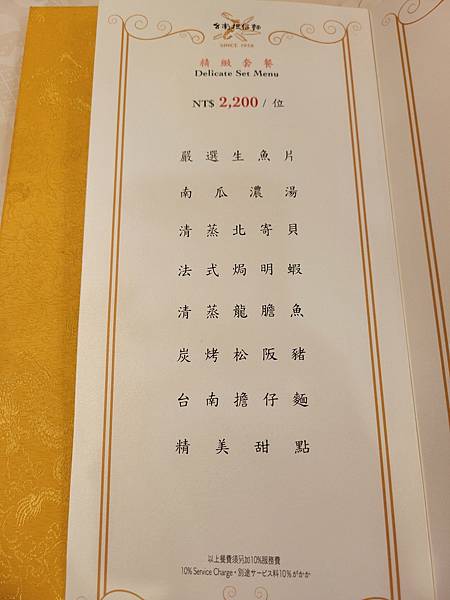 SINCE 1958
精緻套餐
Delicate Set Menu
NT$ 2,200 / 位
嚴選生魚片
南瓜濃湯
清蒸北寄貝
法式焗明蝦
清蒸龍膽魚
炭烤松阪豬
台南擔仔麵
精美甜點
以上餐費須另加10%服務費
10% Service Charge・別途サービス料10%がかか